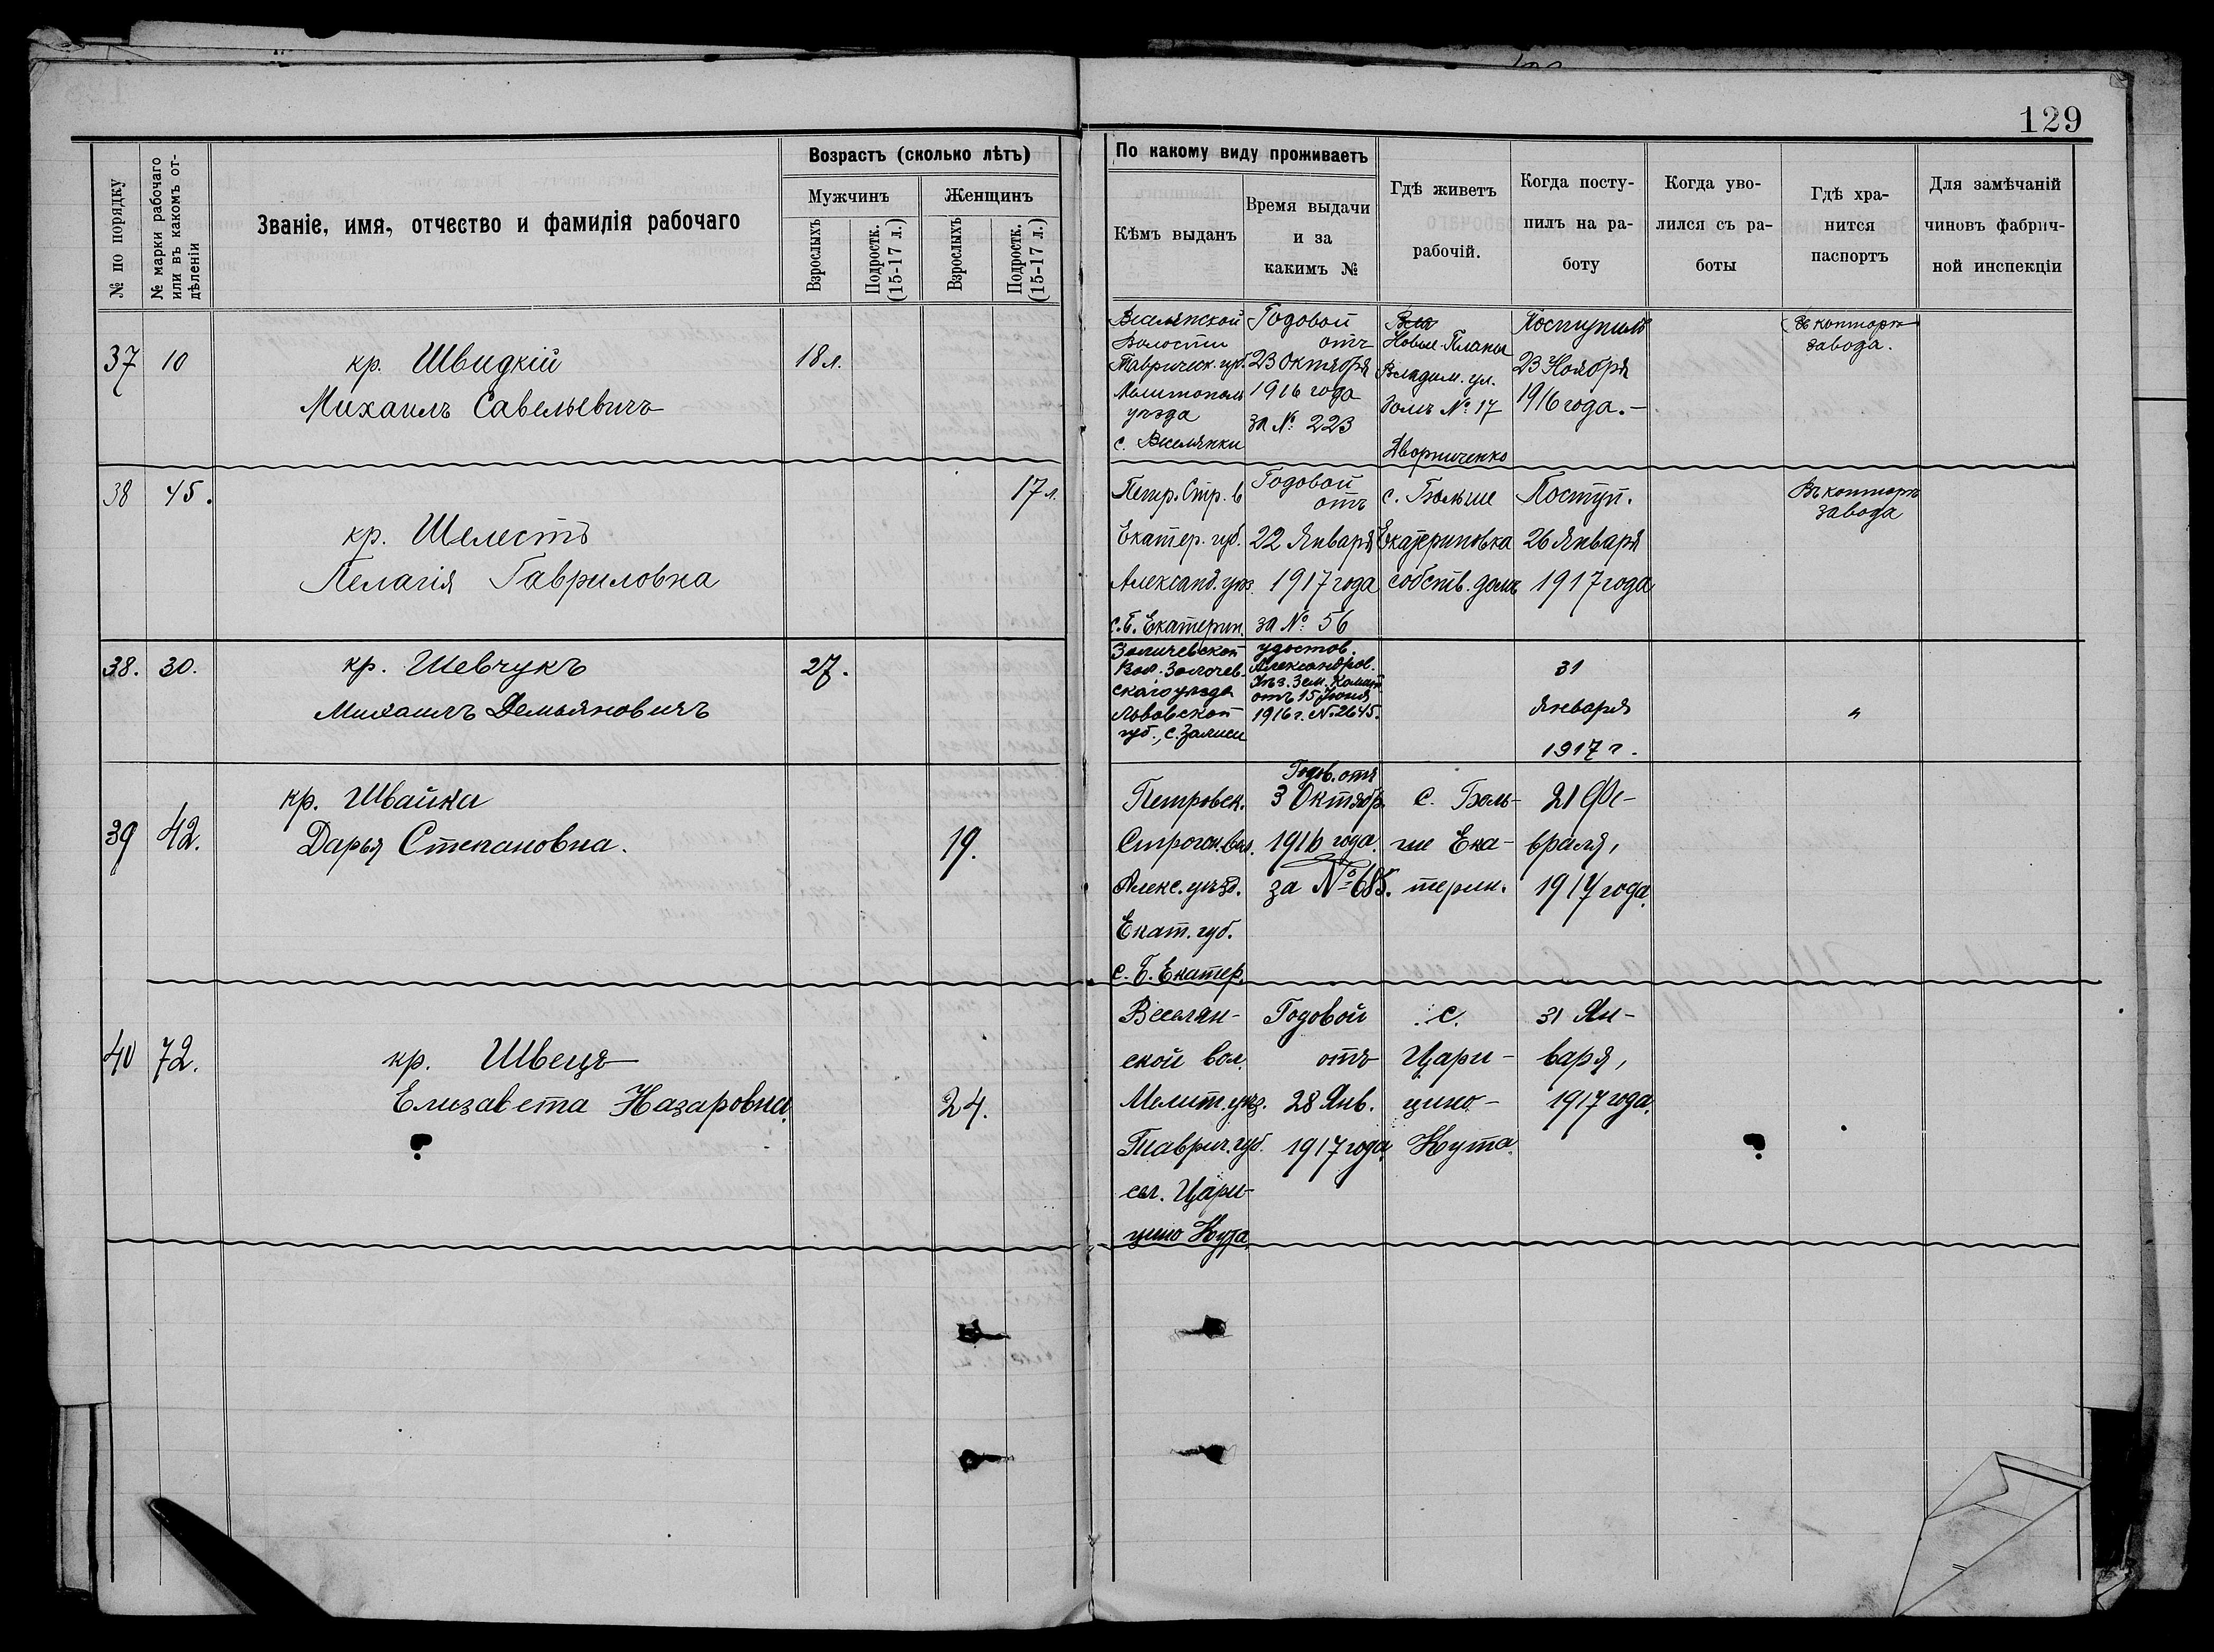 129
№ по порядку
№ марки рабочаго
или въ какомъ от-
дѣленіи
Званіе, имя, отчество и фамилія рабочаго
Возрастъ (сколько лѣтъ)
Мужчинъ
Женщинъ
Взрослыхъ
Подростк.
(15-17 л.)
Взрослыхъ
Подростк.
(15-17 л.)
По какому виду проживаетъ
Кѣмъ выданъ
Время выдачи
и за
какимъ №
Гдѣ живетъ
рабочій.
Когда посту-
пилъ на ра-
боту
Когда уво-
лился съ ра-
боты
Гдѣ хра-
нится
паспортъ
Для замѣчаній
чиновъ фабрич-
ной инспекціи
37
10
кр. Швидкій
Михаилъ Савельевичъ
18 л.
Веселянской
Волости
Таврическ. губ.
Мелитополь
уѣзда
с. Веселянки
Годовой
отъ
23 Октября
1916 года
за № 223
Новые-Планы
Владим. ул.
домъ № 17
Дворниченко
Поступилъ
23 Ноября
1916 года.—
Въ конторѣ
завода.
38
45.
кр. Шелестъ
Пелагія Гавриловна
17 л.
Петр. Стр. в
Екатер. губ.
Александ. уѣз.
с. Б. Екатерин.
Годовой
отъ
22 Января
1917 года
за № 56
с. Больше
Екатериновка
собств. домъ
Поступ.
26 Января
1917 года
Въ конторѣ
завода
38.
30.
кр. Шевчукъ
Михаилъ Демьяновичъ
27.
Вол. Золочев-
скаго уѣзда
Львовской
губ., с.
удостов.
Александров.
Уѣз. Зем. Комит
отъ 15 Іюня
1916 г. № 2645.
31
Января
1917 г.
"
39
42.
кр. Швайка
Дарья Степановна.
19.
Петровск.
Строгон. вол.
Алекс. уѣзд.
Екат. губ.
с. Б. Екатер.
Годов. отъ
3 Октябр.
1916 года.
за № 685.
с. Боль-
ше Ека-
терин.
21 Фе-
враля,
1917 года.
40
72.
кр. Швецъ
Елизавета Назаровна.
24.
Веселян-
ской вол.
Мелит. уѣз.
Таврич. губ.
сел. Цари-
цино Кута.
Годовой
отъ
28 Янв.
1917 года.
с.
Цари-
цино-
Кута.
31 Ян-
варя,
1917 года.